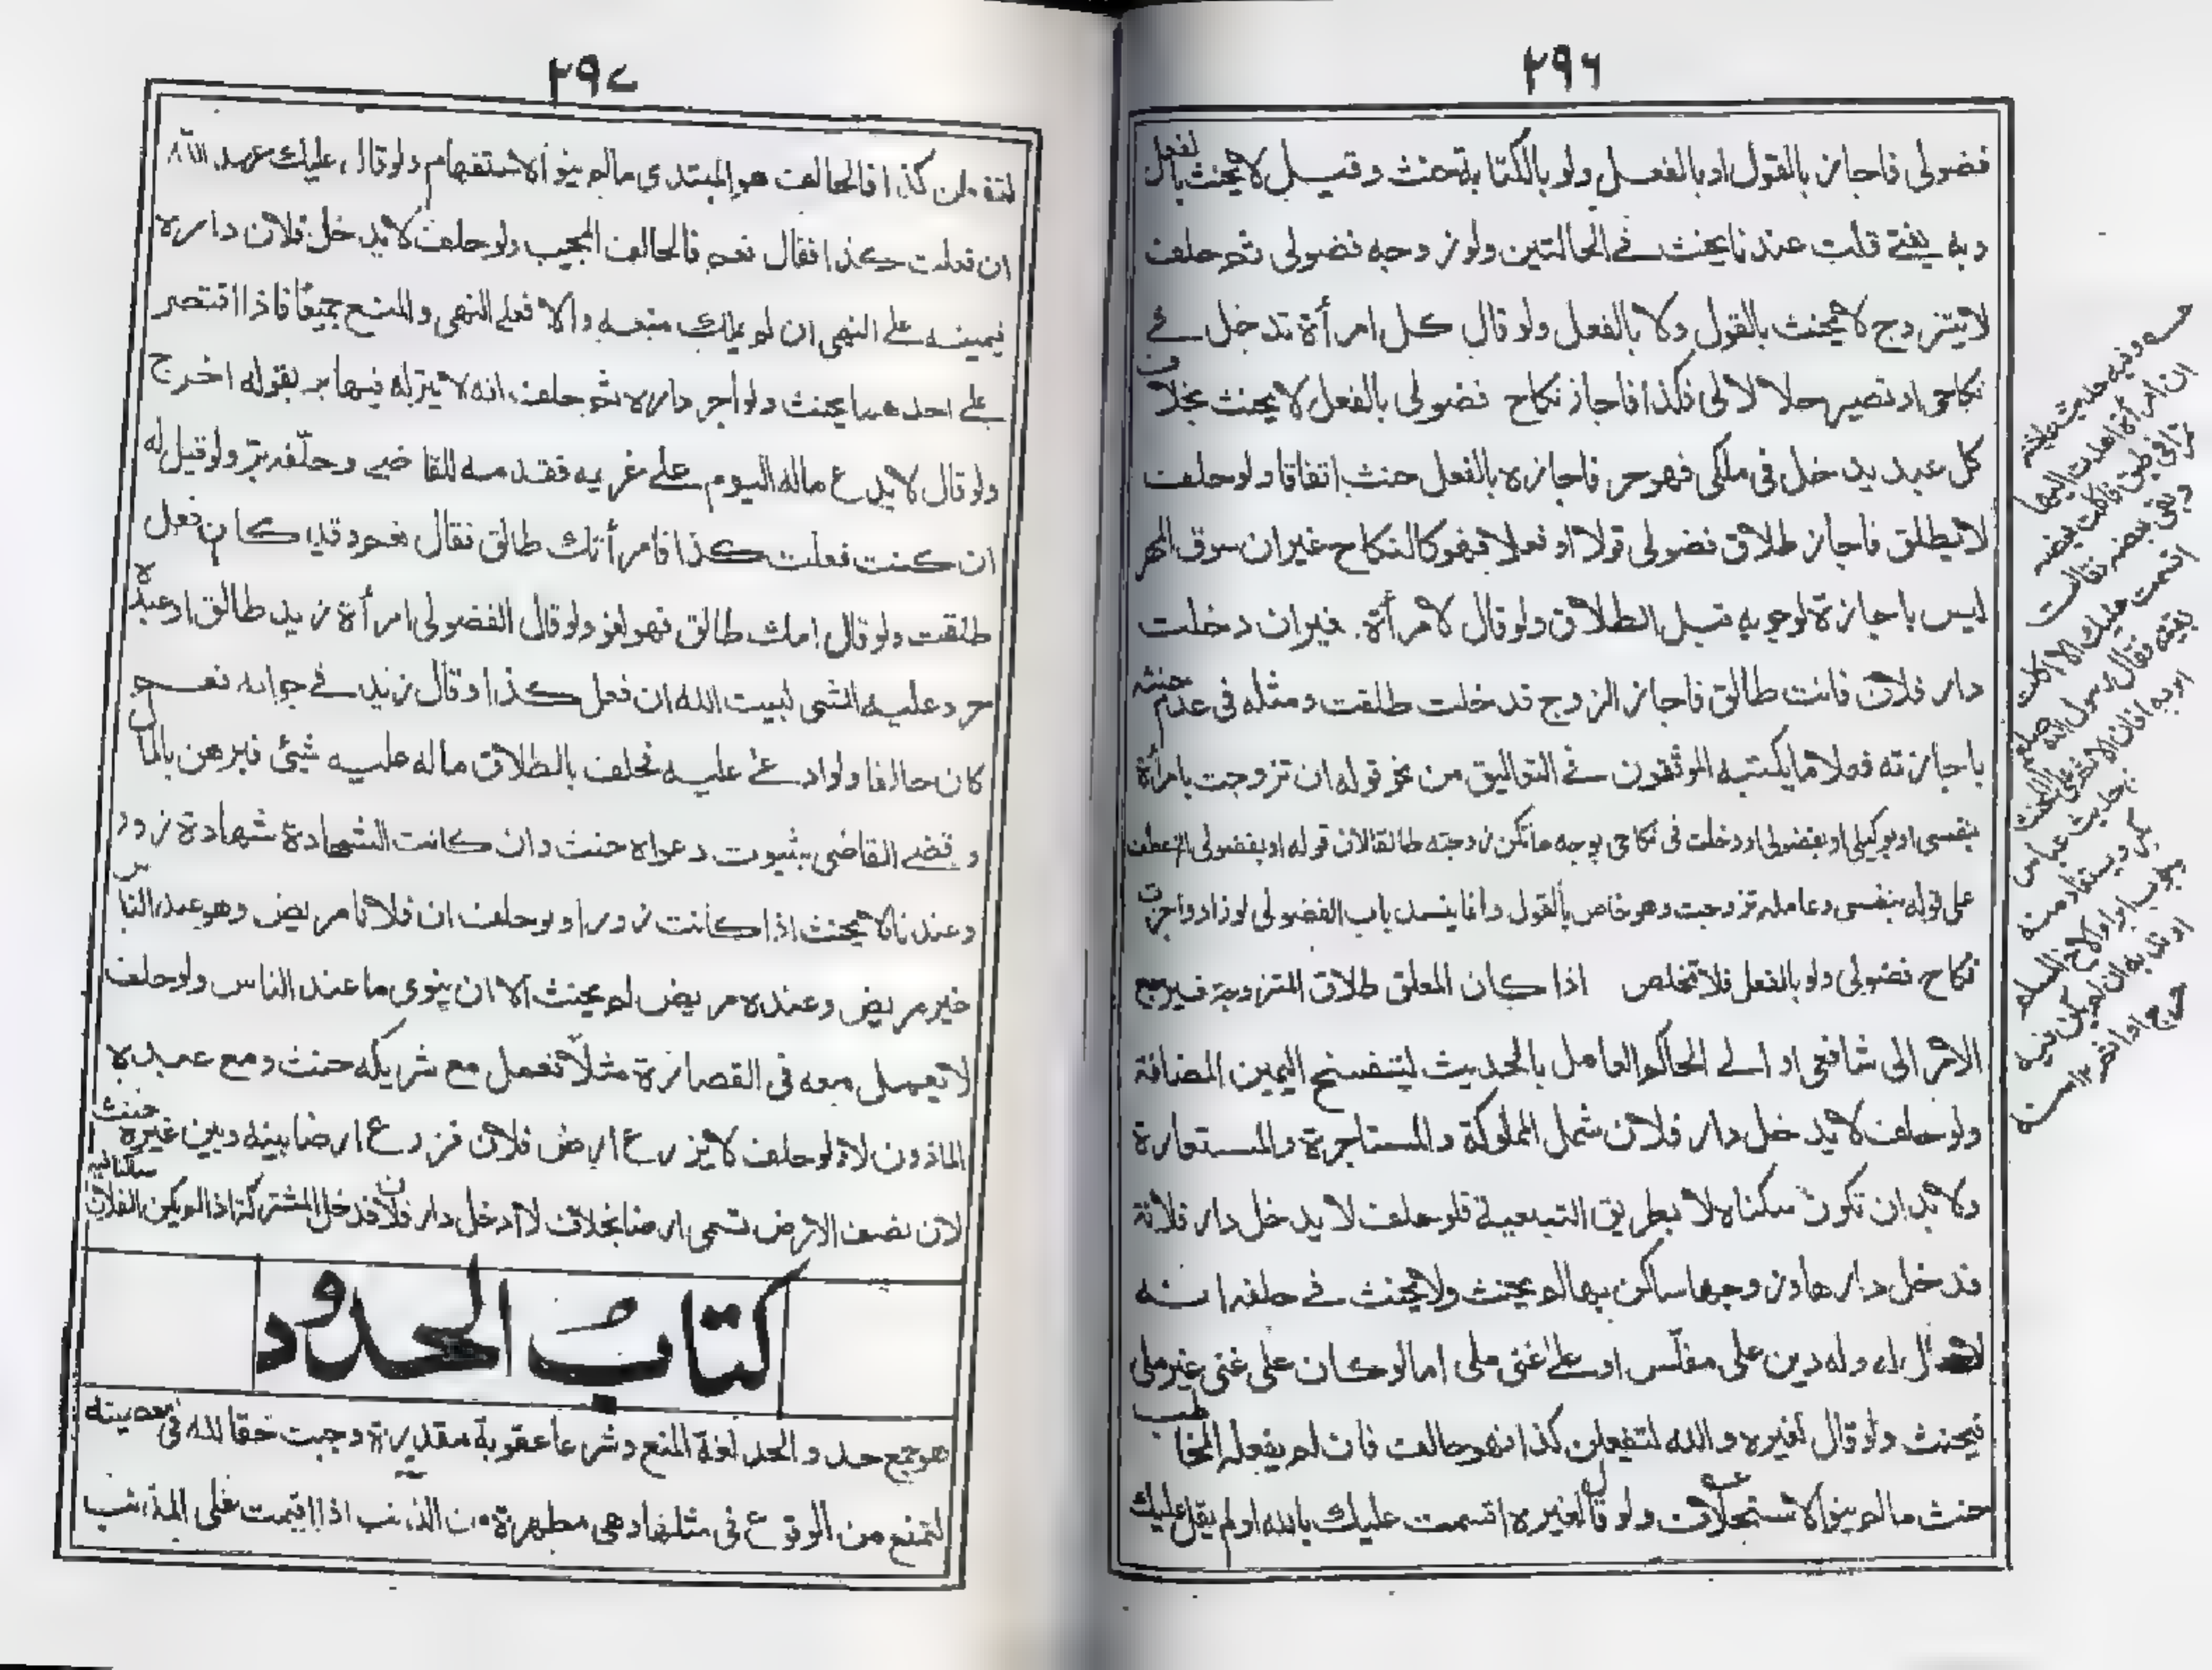 ٢٩٦
فضولى فاجاز بالقول او بالفعل ولو بالكتابة حنث وقيل لا يحنث بالفعل
وبه يفتى قلت عندنا يحنث فى الحالتين ولو زوجه فضولى ثم حلف
لا يتزوج لا يحنث بالقول ولا بالفعل ولو قال كل امرأة تدخل فى
نكاحى او تصير حلالا لى فكذا فاجاز نكاح فضولى بالفعل لا يحنث بخلاف
كل عبد يدخل فى ملكى فهو حر فاجازه بالفعل حنث اتفاقا ولو حلف
لا يطلق فاجاز طلاق فضولى قولا او فعلا فهو كالنكاح غير ان سوق المهر
ليس باجازة لوجوبه قبل الطلاق ولو قال لامرأة غيره ان دخلت
دار فلان فانت طالق فاجاز الزوج فدخلت طلقت ومثله فى عدم حنثه
باجازته فعلا ما يكتبه الموثقون فى التعاليق من نحو قوله ان تزوجت بامرأة
بنفسى او بوكيلى او بفضولى او دخلت فى نكاحى بوجه ما تكن زوجته طالقا لان قوله او بفضولى الخ عطف
على قوله بنفسى وعامله تزوجت وهو خاص بالقول وانما ينسد باب الفضولى لو زاد او اجزت
نكاح فضولى ولو بالفعل فلا تخلص اذا كان المعلق طلاق المتزوجة فيرفع
الامر الى شافعى او الى الحاكم العامل بالحديث ليتفسخ اليمين المضافة
ولو حلف لا يدخل دار فلان شمل المملوكة والمستاجرة والمستعارة
ولا بد ان تكون سكناه لا بطريق التبعية فلو حلف لا يدخل دار فلانة
فدخل دارها وزوجها ساكن بها لم يحنث ولا يحنث فى حلفه انه
لا مال له وله دين على مفلّس او على غنى ملى اما لو كان على غنى غير ملى
فيحنث ولو قال لغيره والله لتفعلن كذا فهو حالف فان لم يفعله المخاطب
حنث ما لم ينو الاستحلاف ولو قال لغيره اقسمت عليك بالله او لم يقل عليك
وفيه حديث عائشة
ان امرأة اهدت اليها
تمرا فى طبق فاكلت بعضه
وبقى بعضه فقالت
اقسمت عليك الا اكلت
بقيته فقال رسول الله صلعم
ابريها فان الاثم على المحنث
٢٩٧
لتفعلن كذا فالحالف هو المبتدى ما لم ينو الاستفهام ولو قال عليك عهد الله
ان فعلت كذا فقال نعم فالحالف المجيب ولو حلف لا يدخل فلان داره
فيمينه على النهى ان لم يملك منعه والا فعلى النهى والمنع جميعا فاذا اقتصر
على احدهما يحنث ولو اجر داره ثم حلف انه لا يتركه فيها بر بقوله اخرج
ولو قال لا يدع ماله اليوم على غريمه فقدمه للقاضى وحلّفه برّ ولو قيل له
ان كنت فعلت كذا فامرأتك طالق فقال نعم وقد كان فعل
طلقت ولو قال امك طالق فهو لغو ولو قال الفضولى امرأة زيد طالق او عبده
حر وعليه المشى لبيت الله ان فعل كذا وقال زيد فى جوابه نعم
كان حالفا ولو ادعى عليه فحلف بالطلاق ما له عليه شيئ فبرهن بالمال
وقضى القاضى بثبوت دعواه حنث وان كانت الشهادة شهادة زور
وعندنا لا يحنث اذا كانت زورا ولو حلف ان فلانا مريض وهو عند الناس
غير مريض وعنده مريض لم يحنث الا ان ينوى ما عند الناس ولو حلف
لا يعمل معه فى القصارة مثلاً فعمل مع شريكه حنث ومع عبده
الماذون لا ولو حلف لا يزرع ارض فلان فزرع ارضا بينه وبين غيره حنث
لان نصف الارض تسمى ارضا بخلاف لا ادخل دار فلان فدخل المشتركة اذا لم يكن الفلان ساكنا فيه
كتاب الحدود
هو جمع حد والحد لغة المنع وشرعا عقوبة مقدرة وجبت حقا لله فى معصيته
لتمنع من الوقوع فى مثلها وهى مطهرة من الذنب اذا اقيمت على المذنب